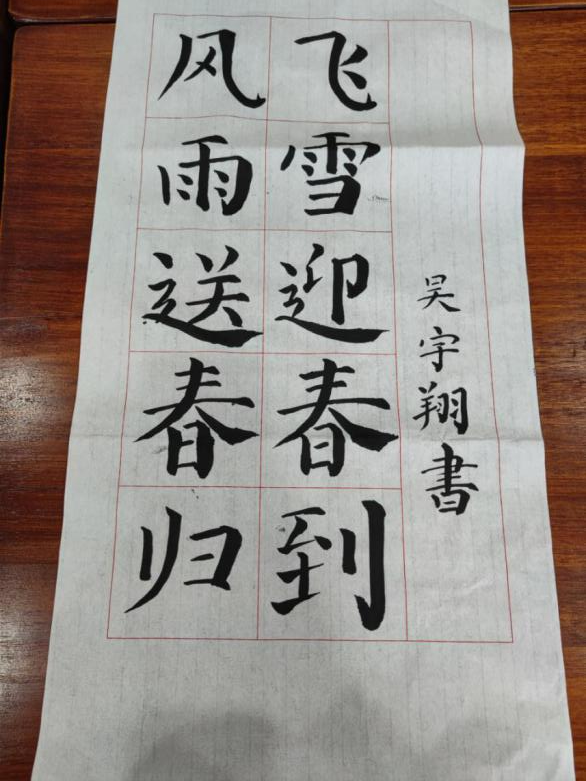 风雨送春归
飞雪迎春到
吴宇翔書